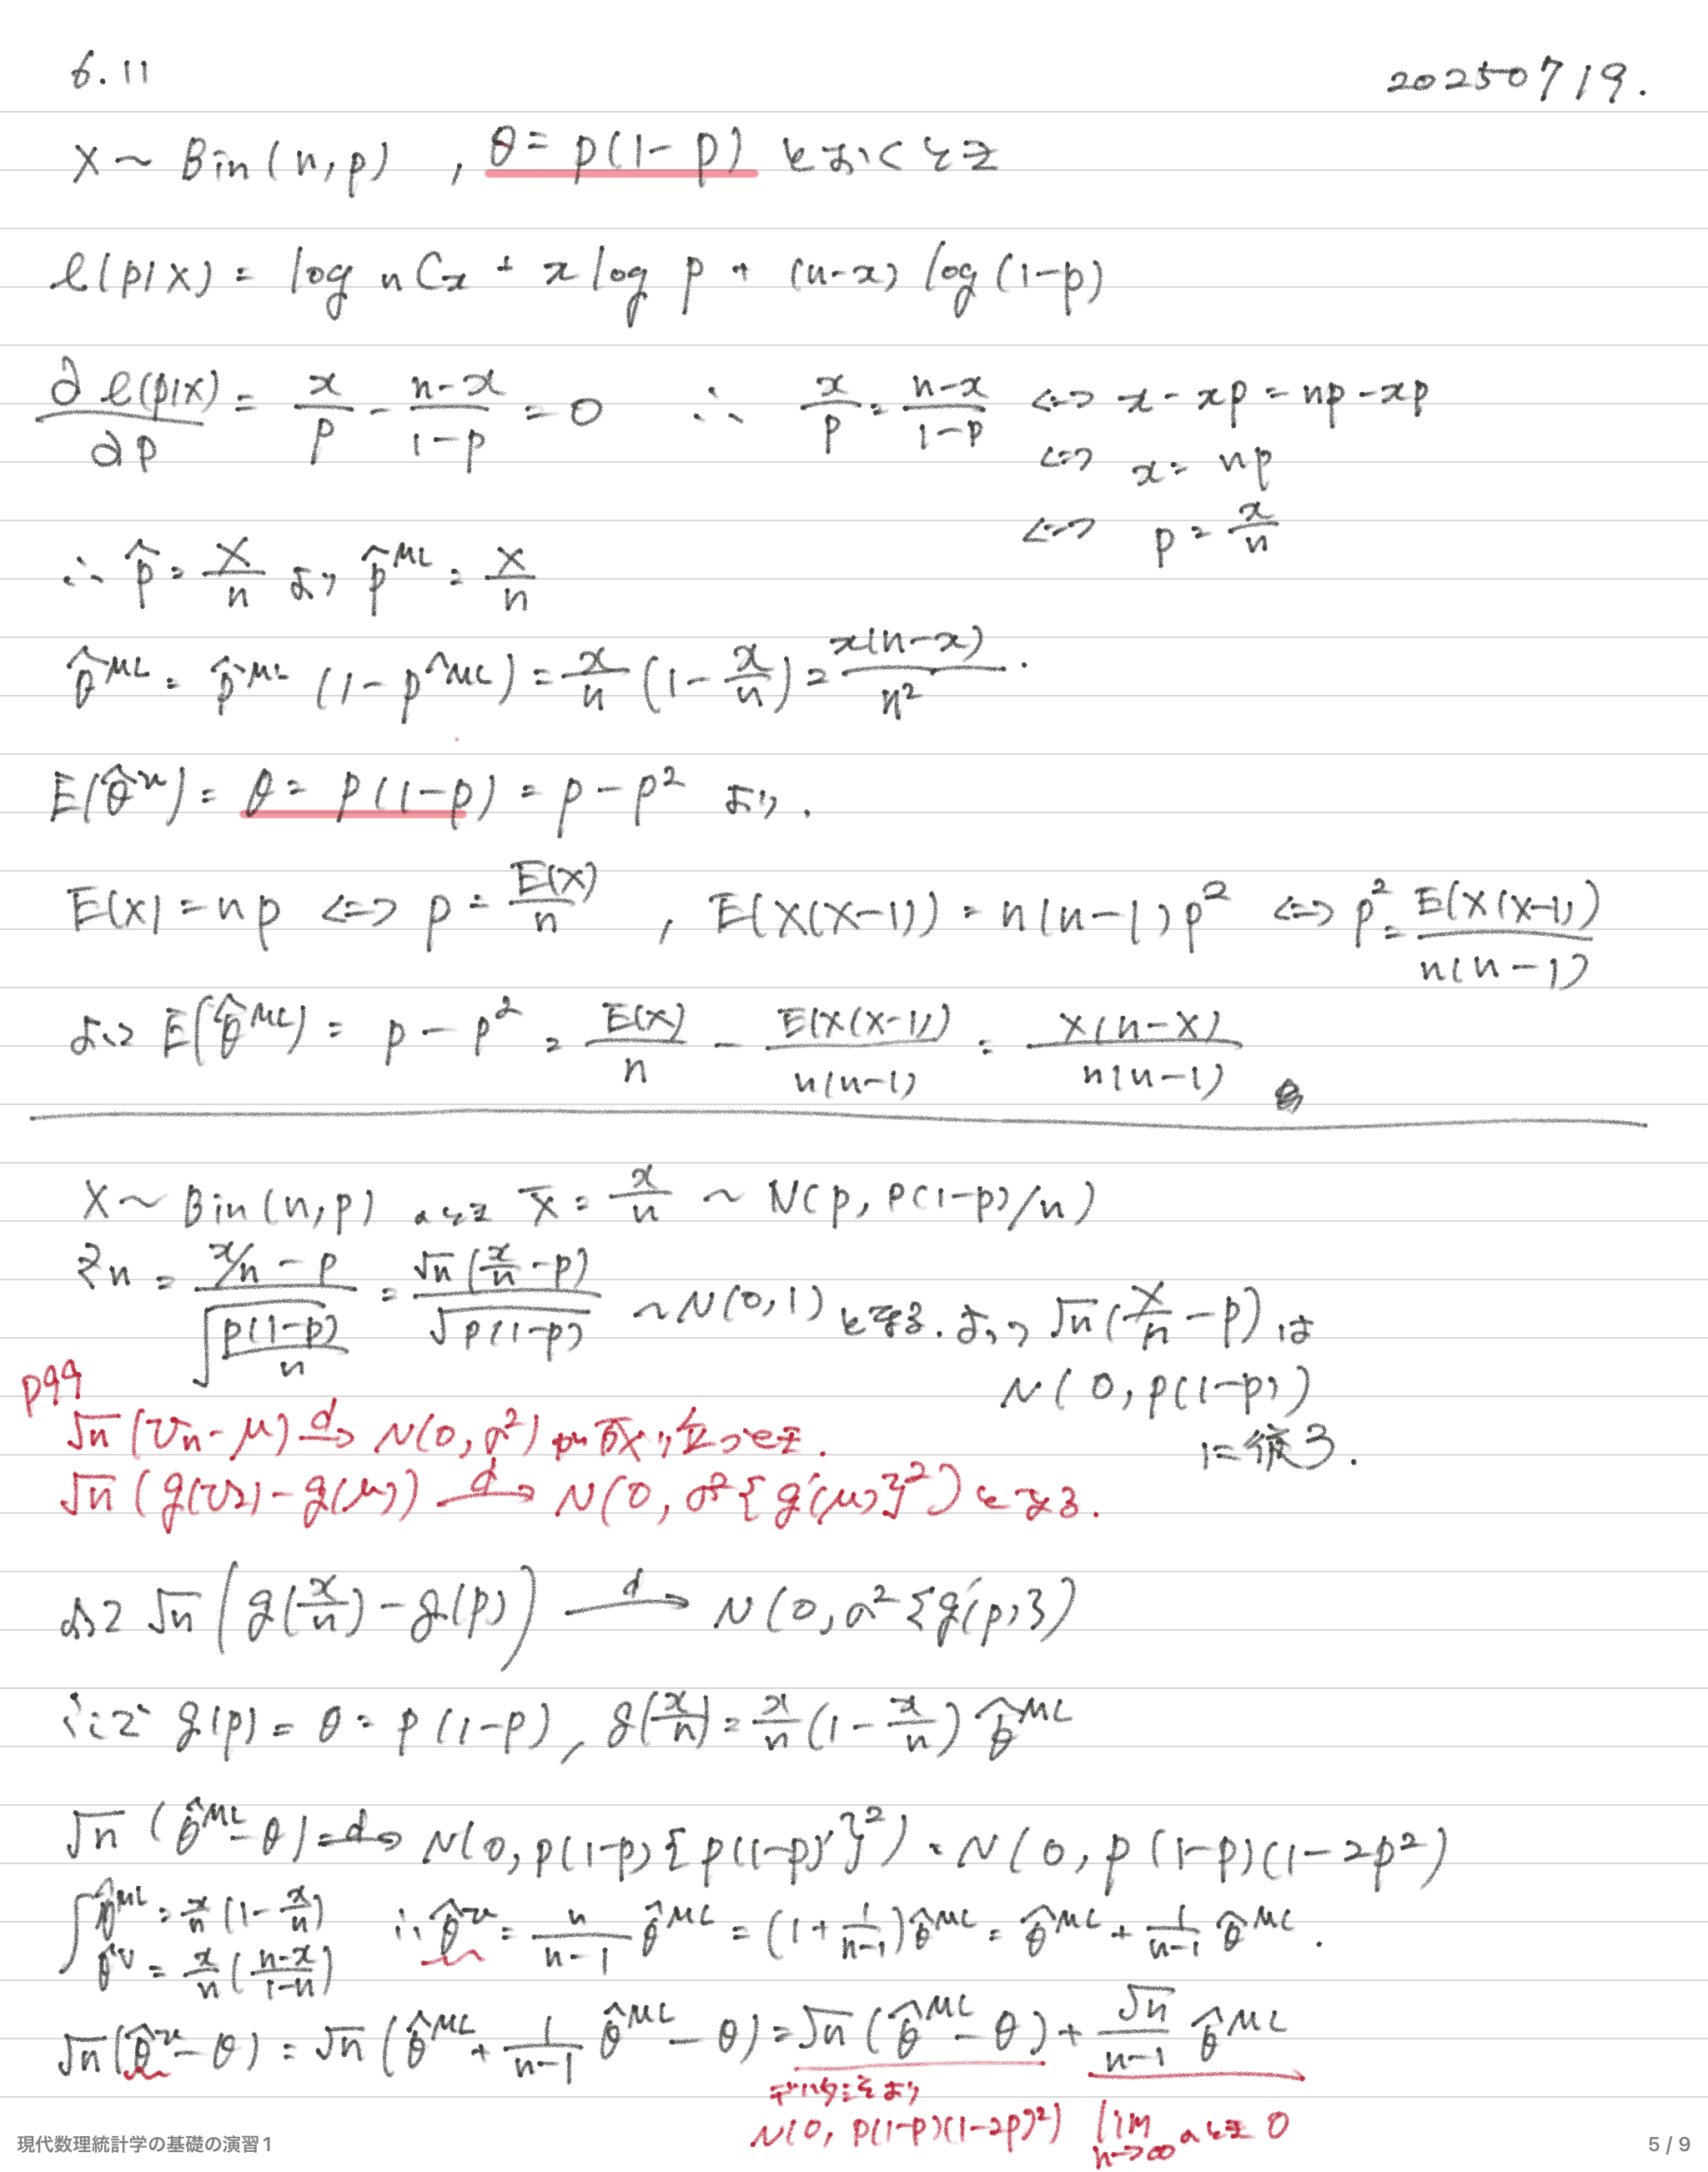 6.11
20250719.
X ~ Bin(n,p) , θ = p(1-p) とおくとき
ℓ(p|X) = log nCx + x log p + (n-x) log(1-p)
∂ℓ(p|X)/∂p = x/p - (n-x)/(1-p) = 0 ∴ x/p = (n-x)/(1-p) ⇔ x - xp = np - xp
⇔ x = np
⇔ p = x/n
∴ p̂ = X/n より p̂^ML = X/n
θ̂^ML = p̂^ML (1 - p̂^ML) = x/n (1 - x/n) = x(n-x)/n² .
E(θ̂^U) = θ = p(1-p) = p - p² より .
E(X) = np ⇔ p = E(X)/n , E(X(X-1)) = n(n-1)p² ⇔ p² = E(X(X-1))/n(n-1)
よって E(θ̂^ML) = p - p² = E(X)/n - E(X(X-1))/n(n-1) = X(n-X)/n(n-1)
X ~ Bin(n,p) のとき X̄ = x/n ~ N(p, p(1-p)/n)
Zn = (x/n - p)/√(p(1-p)/n) = √n(x/n - p)/√(p(1-p)) ~ N(0,1) となる. よって √n(X/n - p) は
N(0, p(1-p))
に従う.
P99
√n(Un - μ) →d N(0, σ²) が成り立つとき.
√n(g(Un) - g(μ)) →d N(0, σ²{g'(μ)}²) となる.
よって √n(g(x/n) - g(p)) →d N(0, σ²{g'(p)})
ここで g(p) = θ = p(1-p), g(x/n) = x/n (1 - x/n) θ̂^ML
√n(θ̂^ML - θ) →d N(0, p(1-p){p(1-p)'}²) = N(0, p(1-p)(1-2p²)
θ̂^ML = x/n (1 - x/n) ∴ θ̂^U = n/(n-1) θ̂^ML = (1 + 1/(n-1)) θ̂^ML = θ̂^ML + 1/(n-1) θ̂^ML .
θ̂^U = x/n ((n-x)/(1-n))
√n(θ̂^U - θ) = √n(θ̂^ML + 1/(n-1) θ̂^ML - θ) = √n(θ̂^ML - θ) + √n/(n-1) θ̂^ML
デルタ法より
N(0, p(1-p)(1-2p)²) lim n→∞ のとき 0
現代数理統計学の基礎の演習1
5 / 9